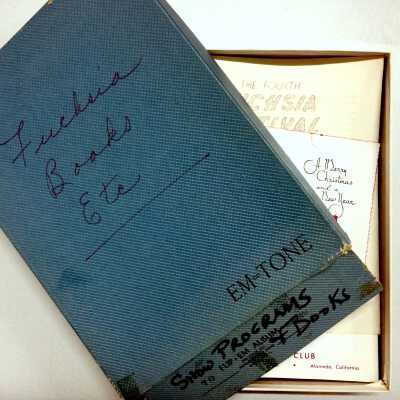 Fuchsia
Books
Etc
EM-TONE
Show PROGRAMS
& BOOKS
TO FLIP-EM ALBUM
THE FOURTH
FUCHSIA
FESTIVAL
A Merry
Christmas
and a
New Year
CLUB
Alameda, California